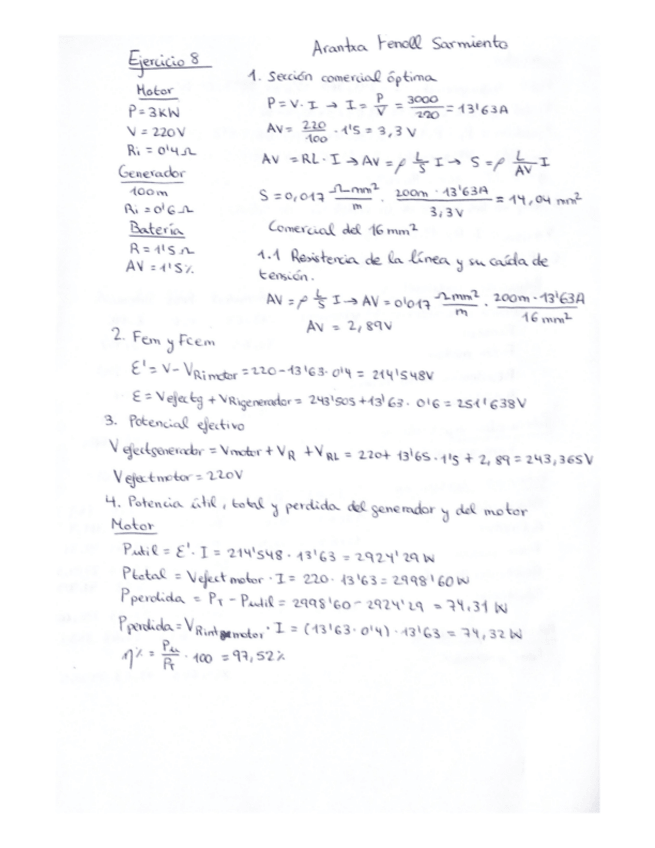 Arantxa Fenoll Sarmiento
Ejercicio 8
Motor
P = 3KW
V = 220V
Ri = 0'4Ω
Generador
100m
Ri = 0'6Ω
Batería
R = 1'5Ω
AV = 1'5%
1. Sección comercial óptima
P = V · I → I = P/V = 3000/220 = 13'63A
AV = 220/100 · 1'5 = 3,3V
AV = RL · I → AV = ρ L/S I → S = ρ L/AV I
S = 0,017 Ωmm²/m · 200m · 13'63A/3,3V = 14,04 mm²
Comercial del 16mm²
1.1 Resistencia de la línea y su caída de
tensión.
AV = ρ L/S I → AV = 0'017 Ωmm²/m · 200m · 13'63A/16mm²
AV = 2,89V
2. Fem y Fcem
ε' = V - VRimotor = 220 - 13'63 · 0'4 = 214'548V
ε = Vefectg + VRigenerador = 243'505 + 13'63 · 0'6 = 251'638V
3. Potencial efectivo
Vefectgenerador = Vmotor + VR + VRL = 220 + 13'65 · 1'5 + 2,89 = 243,365V
Vefectmotor = 220V
4. Potencia útil, total y perdida del generador y del motor
Motor
Putil = ε' · I = 214'548 · 13'63 = 2924'29W
Ptotal = Vefect motor · I = 220 · 13'63 = 2998'60W
Pperdida = PT - Putil = 2998'60 - 2924'29 = 74,31W
Pperdida = VRintmotor · I = (13'63 · 0'4) · 13'63 = 74,32W
η% = Pu/PT · 100 = 97,52%